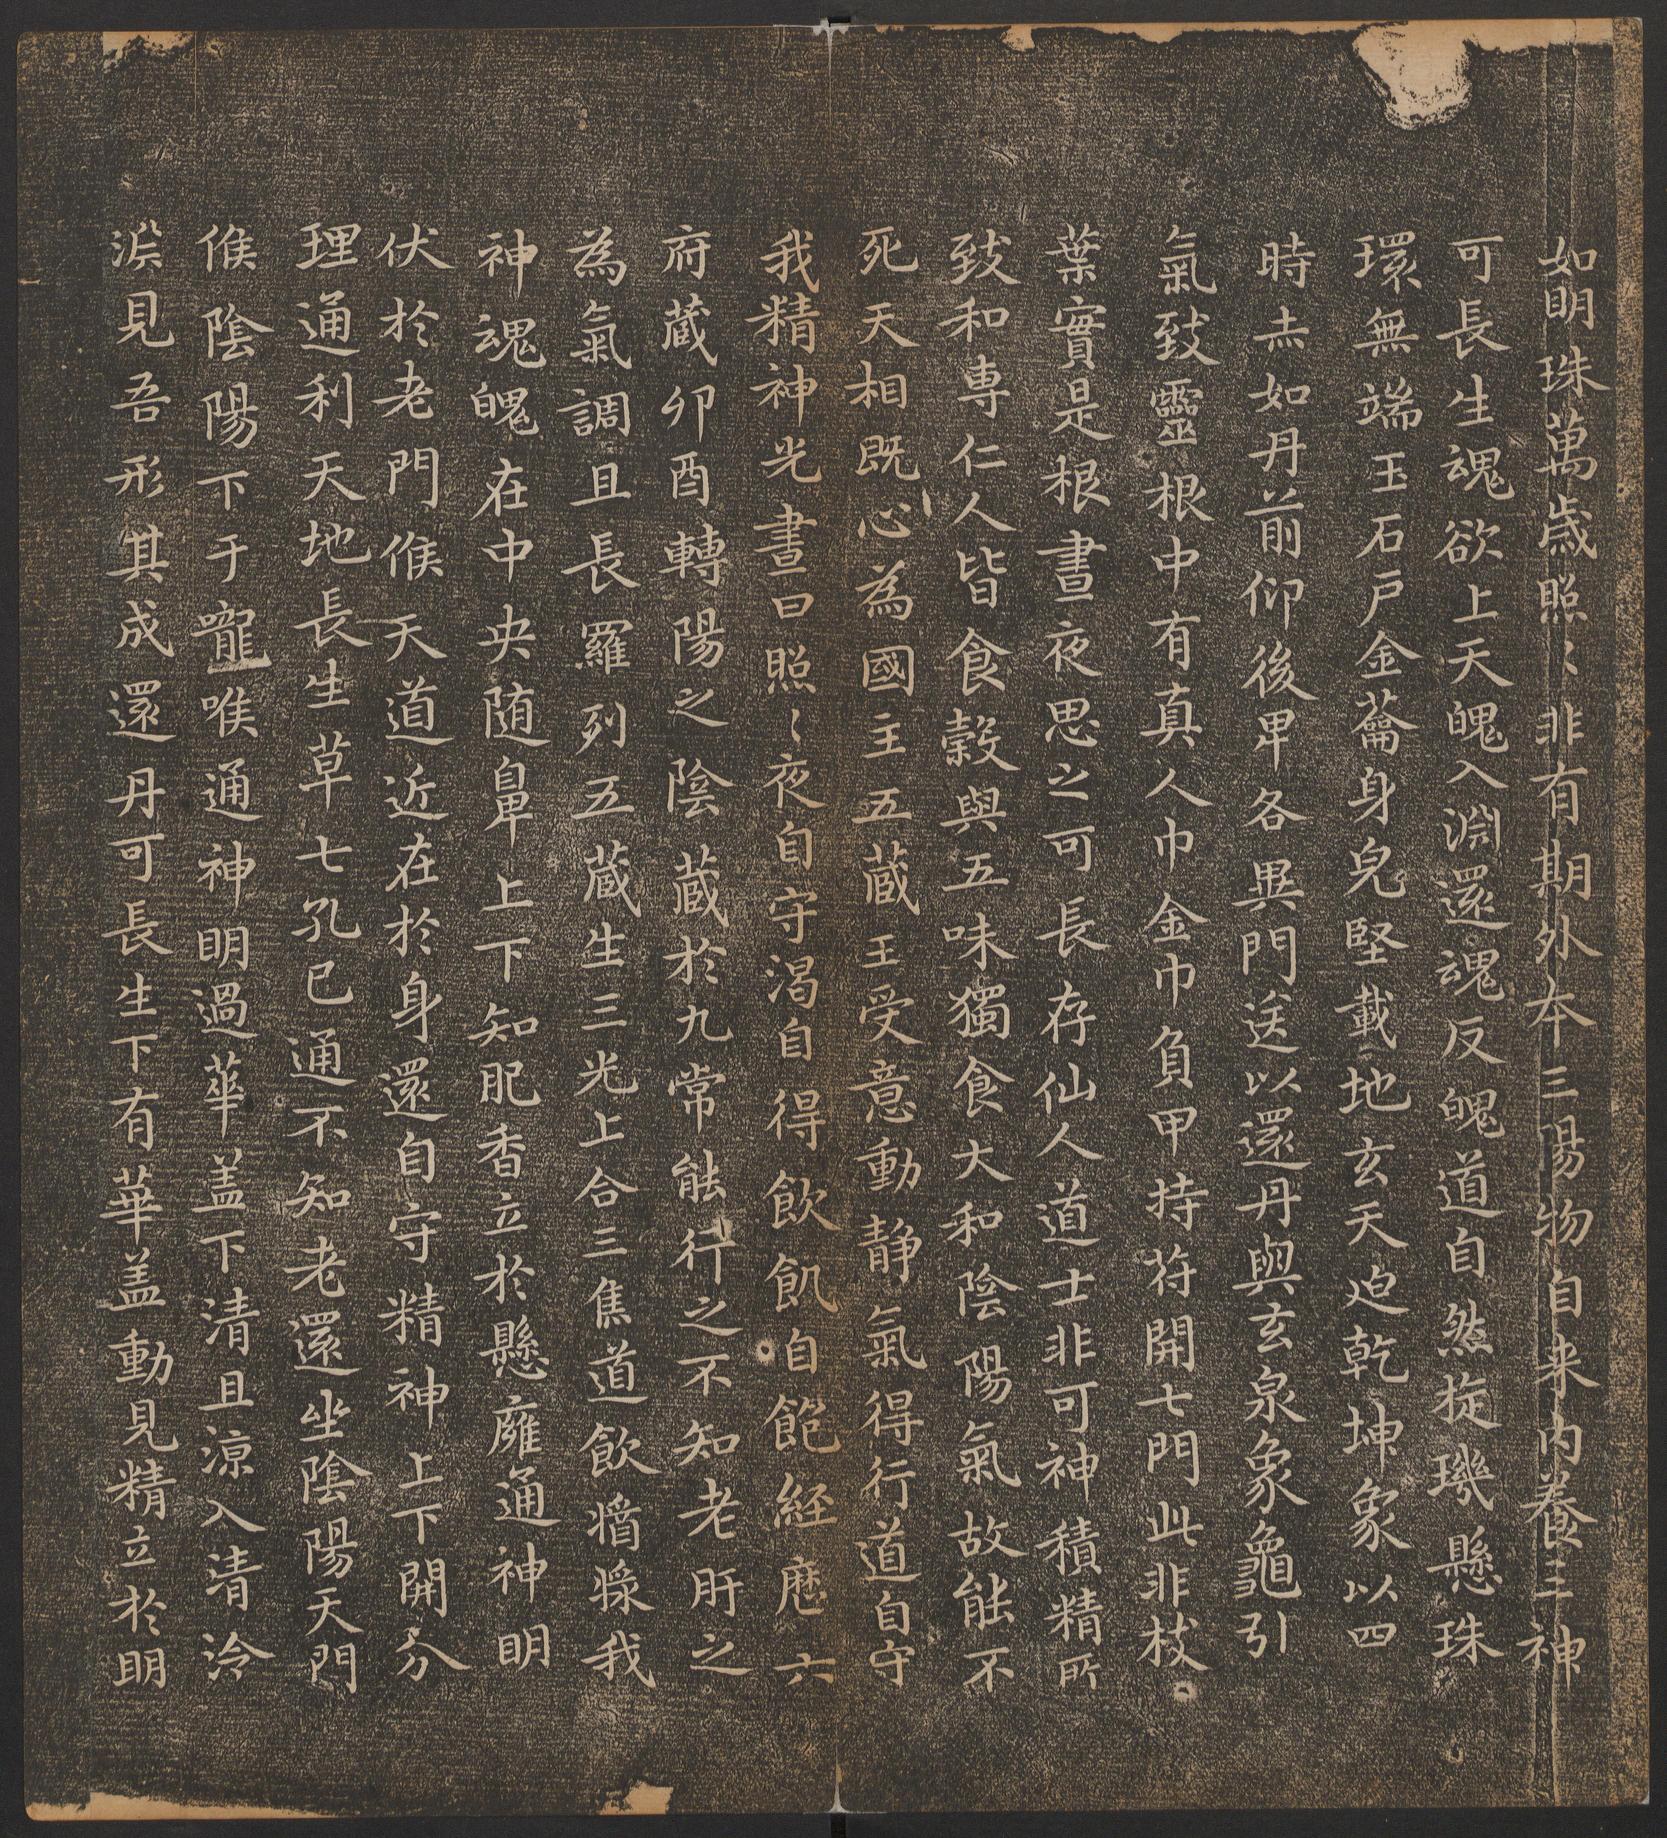 如明珠萬歲照〻非有期外本三陽物自来内養三神
可長生魂欲上天魄入淵還魂反魄道自然㨁璣懸珠
環無端玉石戶金籥身皃堅載地玄天迫乾坤象以四
時赤如丹前仰後卑各異門送以還丹與玄泉象龜引
氣致靈根中有真人巾金巾負甲持苻開七門此非枝
葉實是根晝夜思之可長存仙人道士非可神積精所
致和専仁人皆食榖與五味獨食大和陰陽氣故能不
死天相既心為國主五蔵王受意動静氣得行道自守
我精神光晝日照〻夜自守渴自得飲飢自飽経歷六
府蔵卯酉轉陽之陰蔵於九常能行之不知老肝之
為氣調且長羅列五蔵生三光上合三焦道飲醬漿我
神魂魄在中央随鼻上下知肥香立於懸廱通神明
伏於老門候天道近在於身還自守精神上下開分
理通利天地長生草七孔已通不知老還坐陰陽天門
候陰陽下于嚨喉通神明過華盖下清且涼入清泠
淵見吾形其成還丹可長生下有華盖動見精立於明